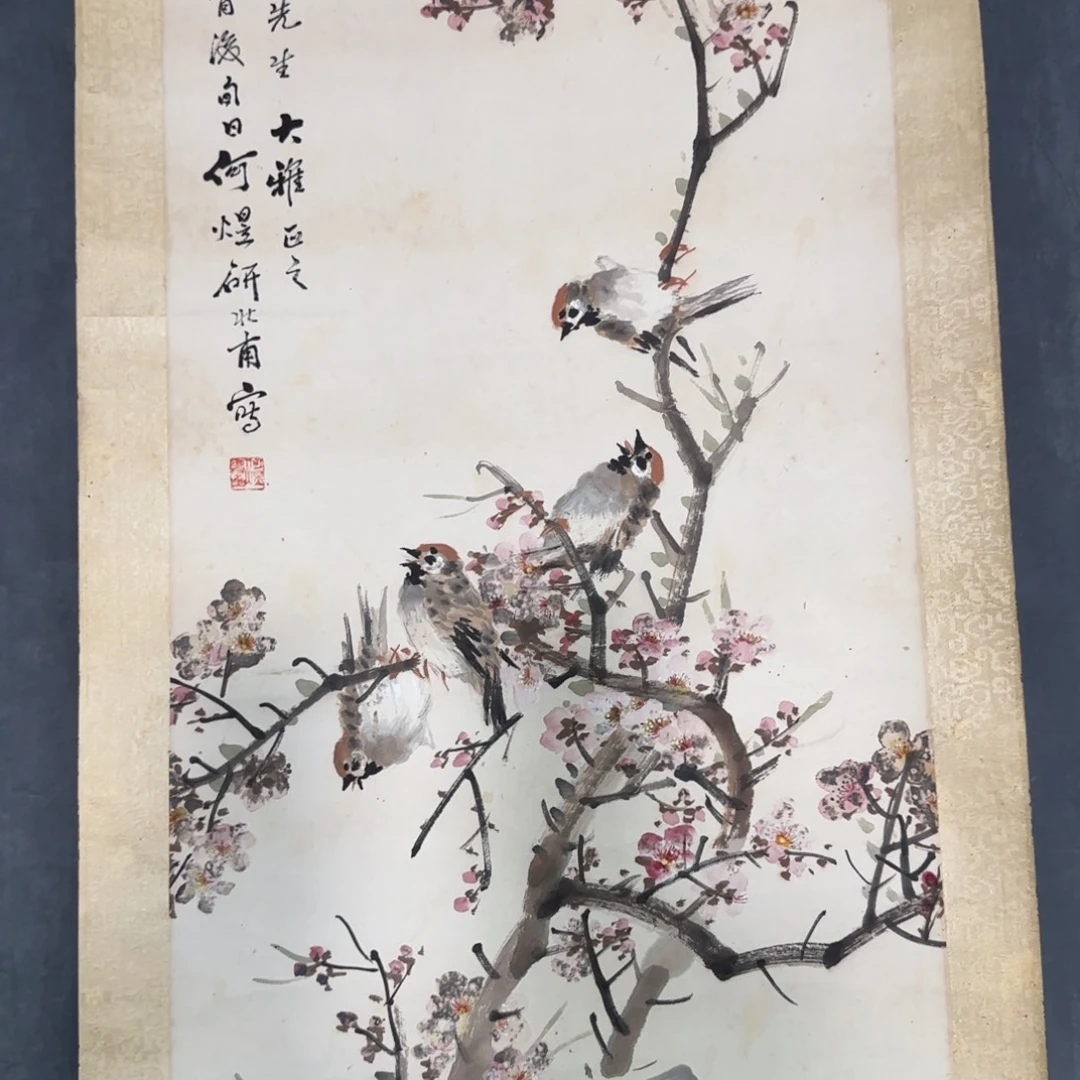 先生 大雅正之
後旬日何煜研北甫寫